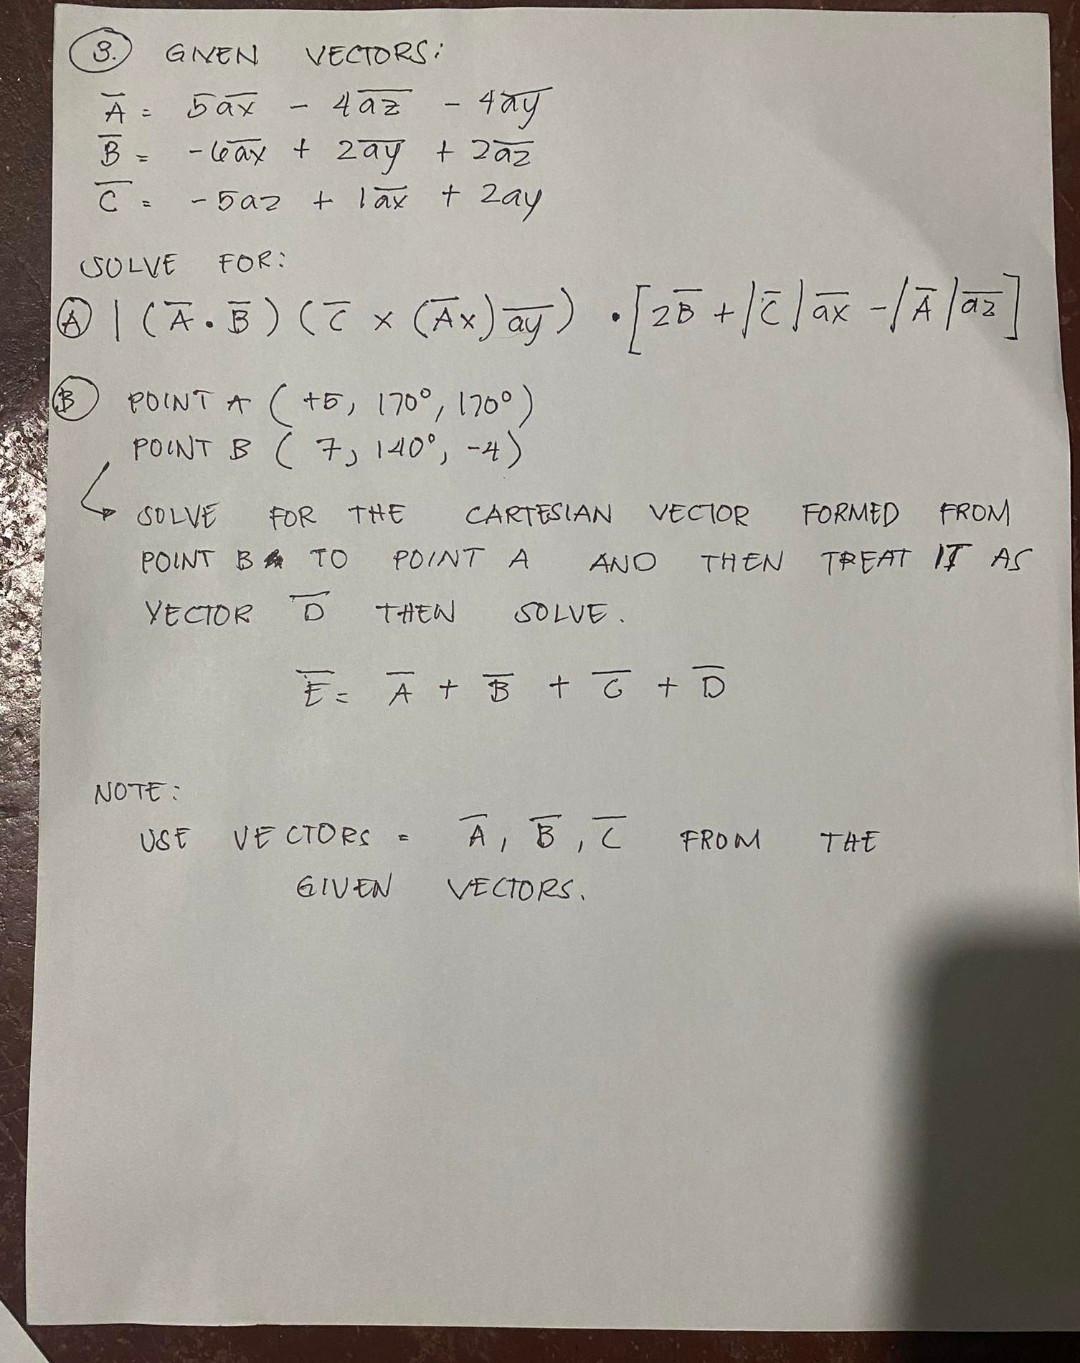 3. GIVEN VECTORS:
A̅ = 5a̅x̅ - 4a̅z̅ - 4a̅y̅
B̅ = -6a̅x̅ + 2a̅y̅ + 2a̅z̅
C̅ = -5az + 1a̅x̅ + 2ay
SOLVE FOR:
A | (A̅ . B̅) (C̅ x (A̅x) a̅y̅) • [2B̅ + |C̅| a̅x̅ - |A̅| a̅z̅]
B POINT A ( +5, 170°, 170°)
POINT B ( 7, 140°, -4)
↳ SOLVE FOR THE CARTESIAN VECTOR FORMED FROM
POINT B TO POINT A AND THEN TREAT IT AS
VECTOR D̅ THEN SOLVE.
E̅ = A̅ + B̅ + C̅ + D̅
NOTE:
USE VECTORS = A̅, B̅, C̅ FROM THE
GIVEN VECTORS.